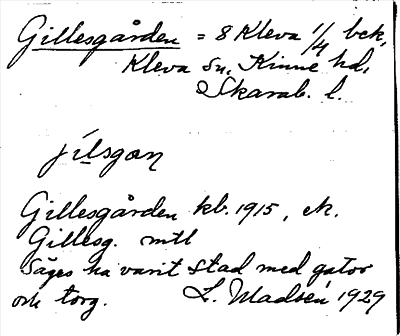 Gillesgården = 8 Kleva 1/4 bek,
Kleva sn, Kinne hd,
Skarab. l.
jílsgaɳ
Gillesgården kb. 1915, ek.
Gillesg. mtl
Säges ha varit stad med gator
och torg. L. Madsén 1929